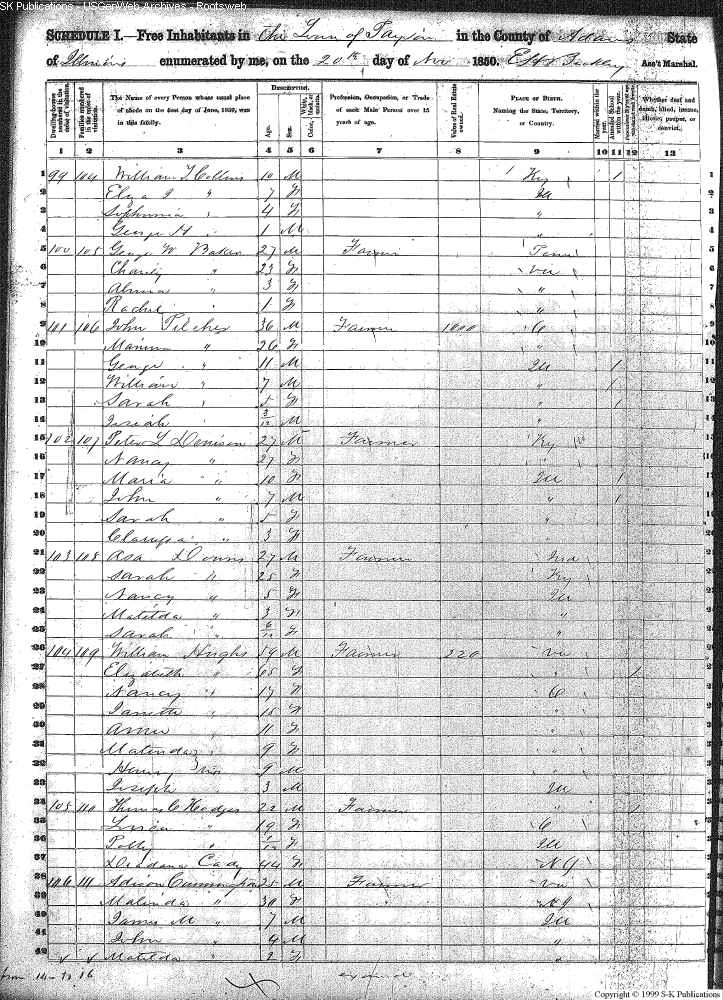 SK Publications - USGenWeb Archives - Rootsweb
SCHEDULE I.—Free Inhabitants in the Town of Payson in the County of Adams State
of Illinois enumerated by me, on the 20th day of Nov 1850. Ass't Marshal.
Dwelling-houses numbered in the order of visitation.
Families numbered in the order of visitation.
The Name of every Person whose usual place of abode on the first day of June, 1850, was in this family.
DESCRIPTION.
Age.
Sex.
White, black, or mulatto.
Color,
Profession, Occupation, or Trade of each Male Person over 15 years of age.
Value of Real Estate owned.
PLACE OF BIRTH. Naming the State, Territory, or Country.
Married within the year.
Attended School within the year.
Whether deaf and dumb, blind, insane, idiotic, pauper, or convict.
1 2 3 4 5 6 7 8 9 10 11 12 13
1 99 104 William T Collins 10 M Ky 1 1
2 Eliza J " 7 F Ill 2
3 Sophronia " 4 F " 3
4 George H " 1 M " 4
5 100 105 George W Baker 27 M Farmer Tenn 5
6 Charity " 23 F 6
7 Almira " 3 F " 7
8 Rachel " 1 F " 8
9 101 106 John Pilcher 36 M Farmer 1000 O 9
10 " 26 F " 10
11 George " 11 M Ill 1 11
12 William " 7 M " 1 12
13 Sarah " 5 F " 1 13
14 Josiah 3/12 M " 14
15 102 107 Peter L Denison 27 M Farmer Ky 15
16 Nancy " 27 F " 16
17 Maria " 10 F Ill 1 17
18 John " 7 M " 1 18
19 Sarah " 5 F " 19
20 Clarissa " 3 F " 20
21 103 108 Asa Downs 27 M Farmer Ind 21
22 Sarah " 25 F Ky 22
23 Nancy " 5 F Ill 23
24 Matilda " 3 F " 24
25 Sarah " 6/12 F " 25
26 104 109 William Hughs 59 M Farmer 220 Va 26
27 Elizabeth " 65 F " 27
28 Nancy " 17 F O 28
29 " 15 F " 29
30 " 11 F " 30
31 Malinda " 9 F " 31
32 Henry 9 M " 32
33 Joseph " 3 M Ill 33
34 105 110 Thomas C Hodges 22 M Farmer 34
35 " 19 F O 35
36 Polly " 1/12 F Ill 36
37 Cady 44 F NY 37
38 106 111 Adison Cunningham 35 M Farmer Va 38
39 Malinda " 30 F NY 39
40 James M " 7 M Ill 40
41 John " 4 M " 41
42 Matilda " 2 F " 42
Copyright © 1999 S-K Publications